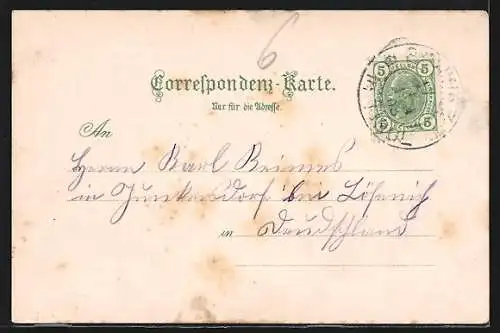 6
Correspondenz-Karte.
Nur für die Adresse.
5 5
5 5
An
Herrn Karl
in Junkersdorf bei
in Deudschland